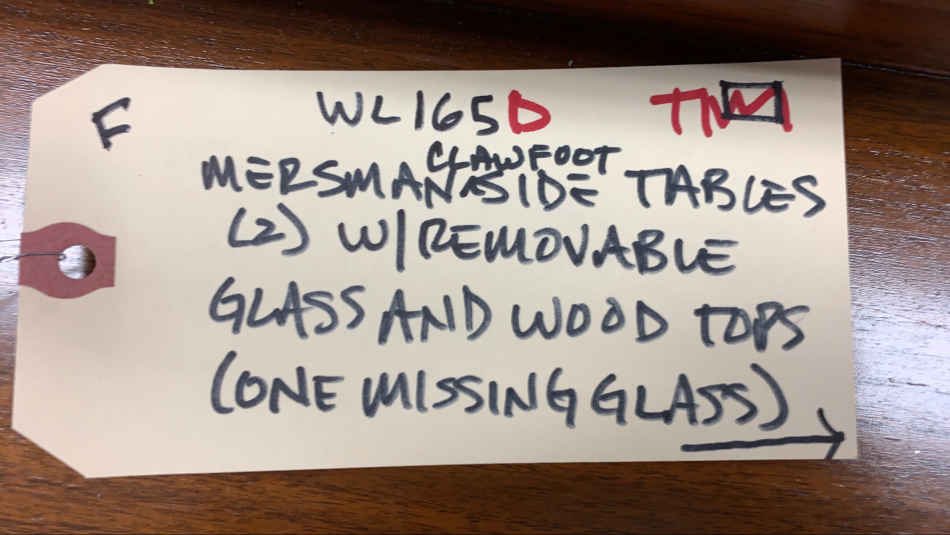 F WL165D TM
MERSMAN CLAWFOOT SIDE TABLES
(2) W/REMOVABLE
GLASS AND WOOD TOPS
(ONE MISSING GLASS)